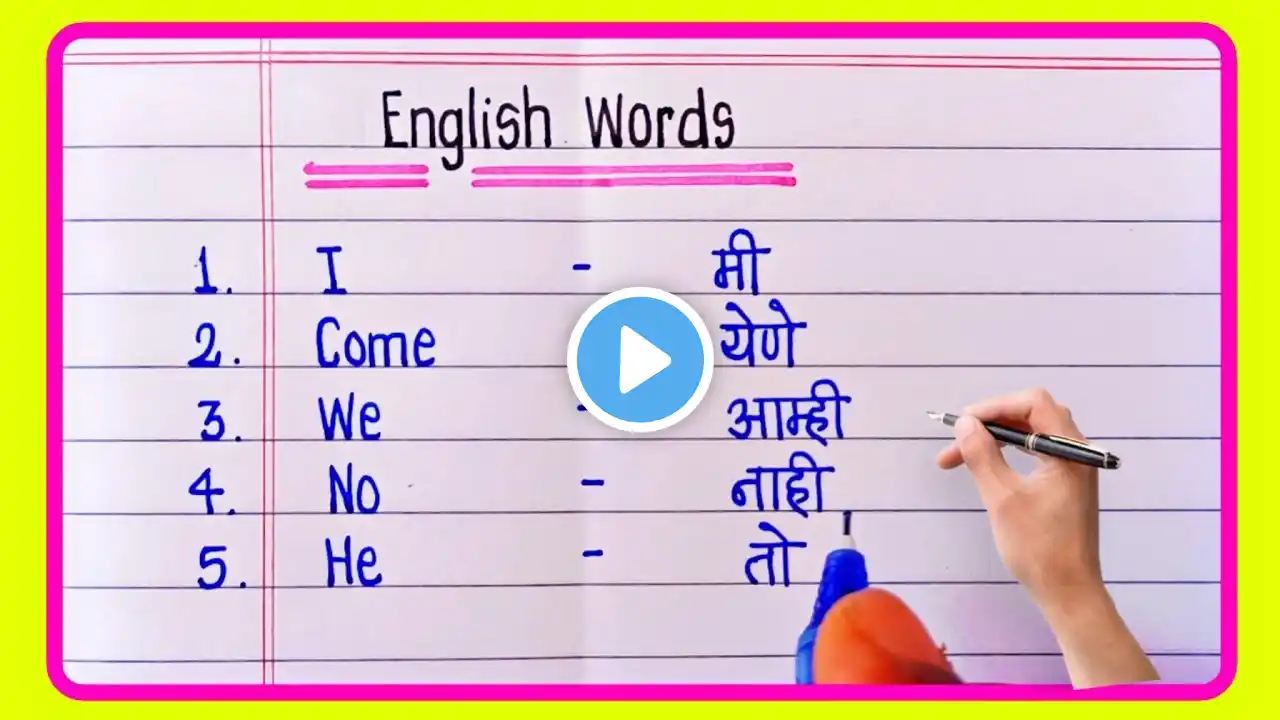 English Words
1. I - मी
2. Come येणे
3. We - आम्ही
4. No - नाही
5. He - तो